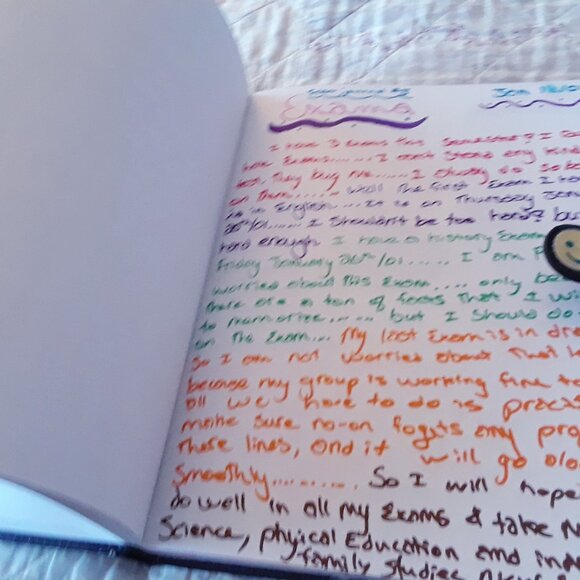 Exams
I have 3 Exams this Semester? I
hate Exams....... I can't stand any kind
test, they bug me...... I always do so
on them....... Well the first Exam I
is in English.... It is on Thursday
25th/01...... I Shouldn't be too hard? but
hard enough. I have a history Exam
Friday January 26th/01...... I am
worried about this Exam.... only
there are a ton of facts that I
to memorize...... but I should do
on the Exam... My last Exam is in
So I am not worries about that
because my group is working fine
all we have to do is
make sure no-on fogets any
there lines, and it will go
Smoothly.......... So I will hope
do well in all my Exams & take
Science, phyical Education and
family Studies